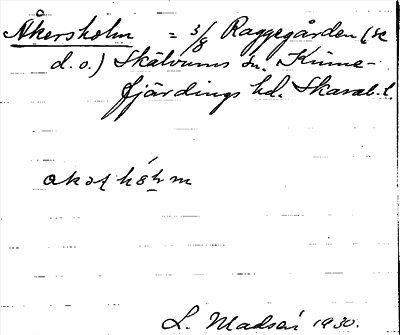 Åkersholm = 3/8 Raggegården (se
d. o.) Skälvums sn. Kinne-
fjärdings hd. Skarab. l.
L. Madsén 1930.